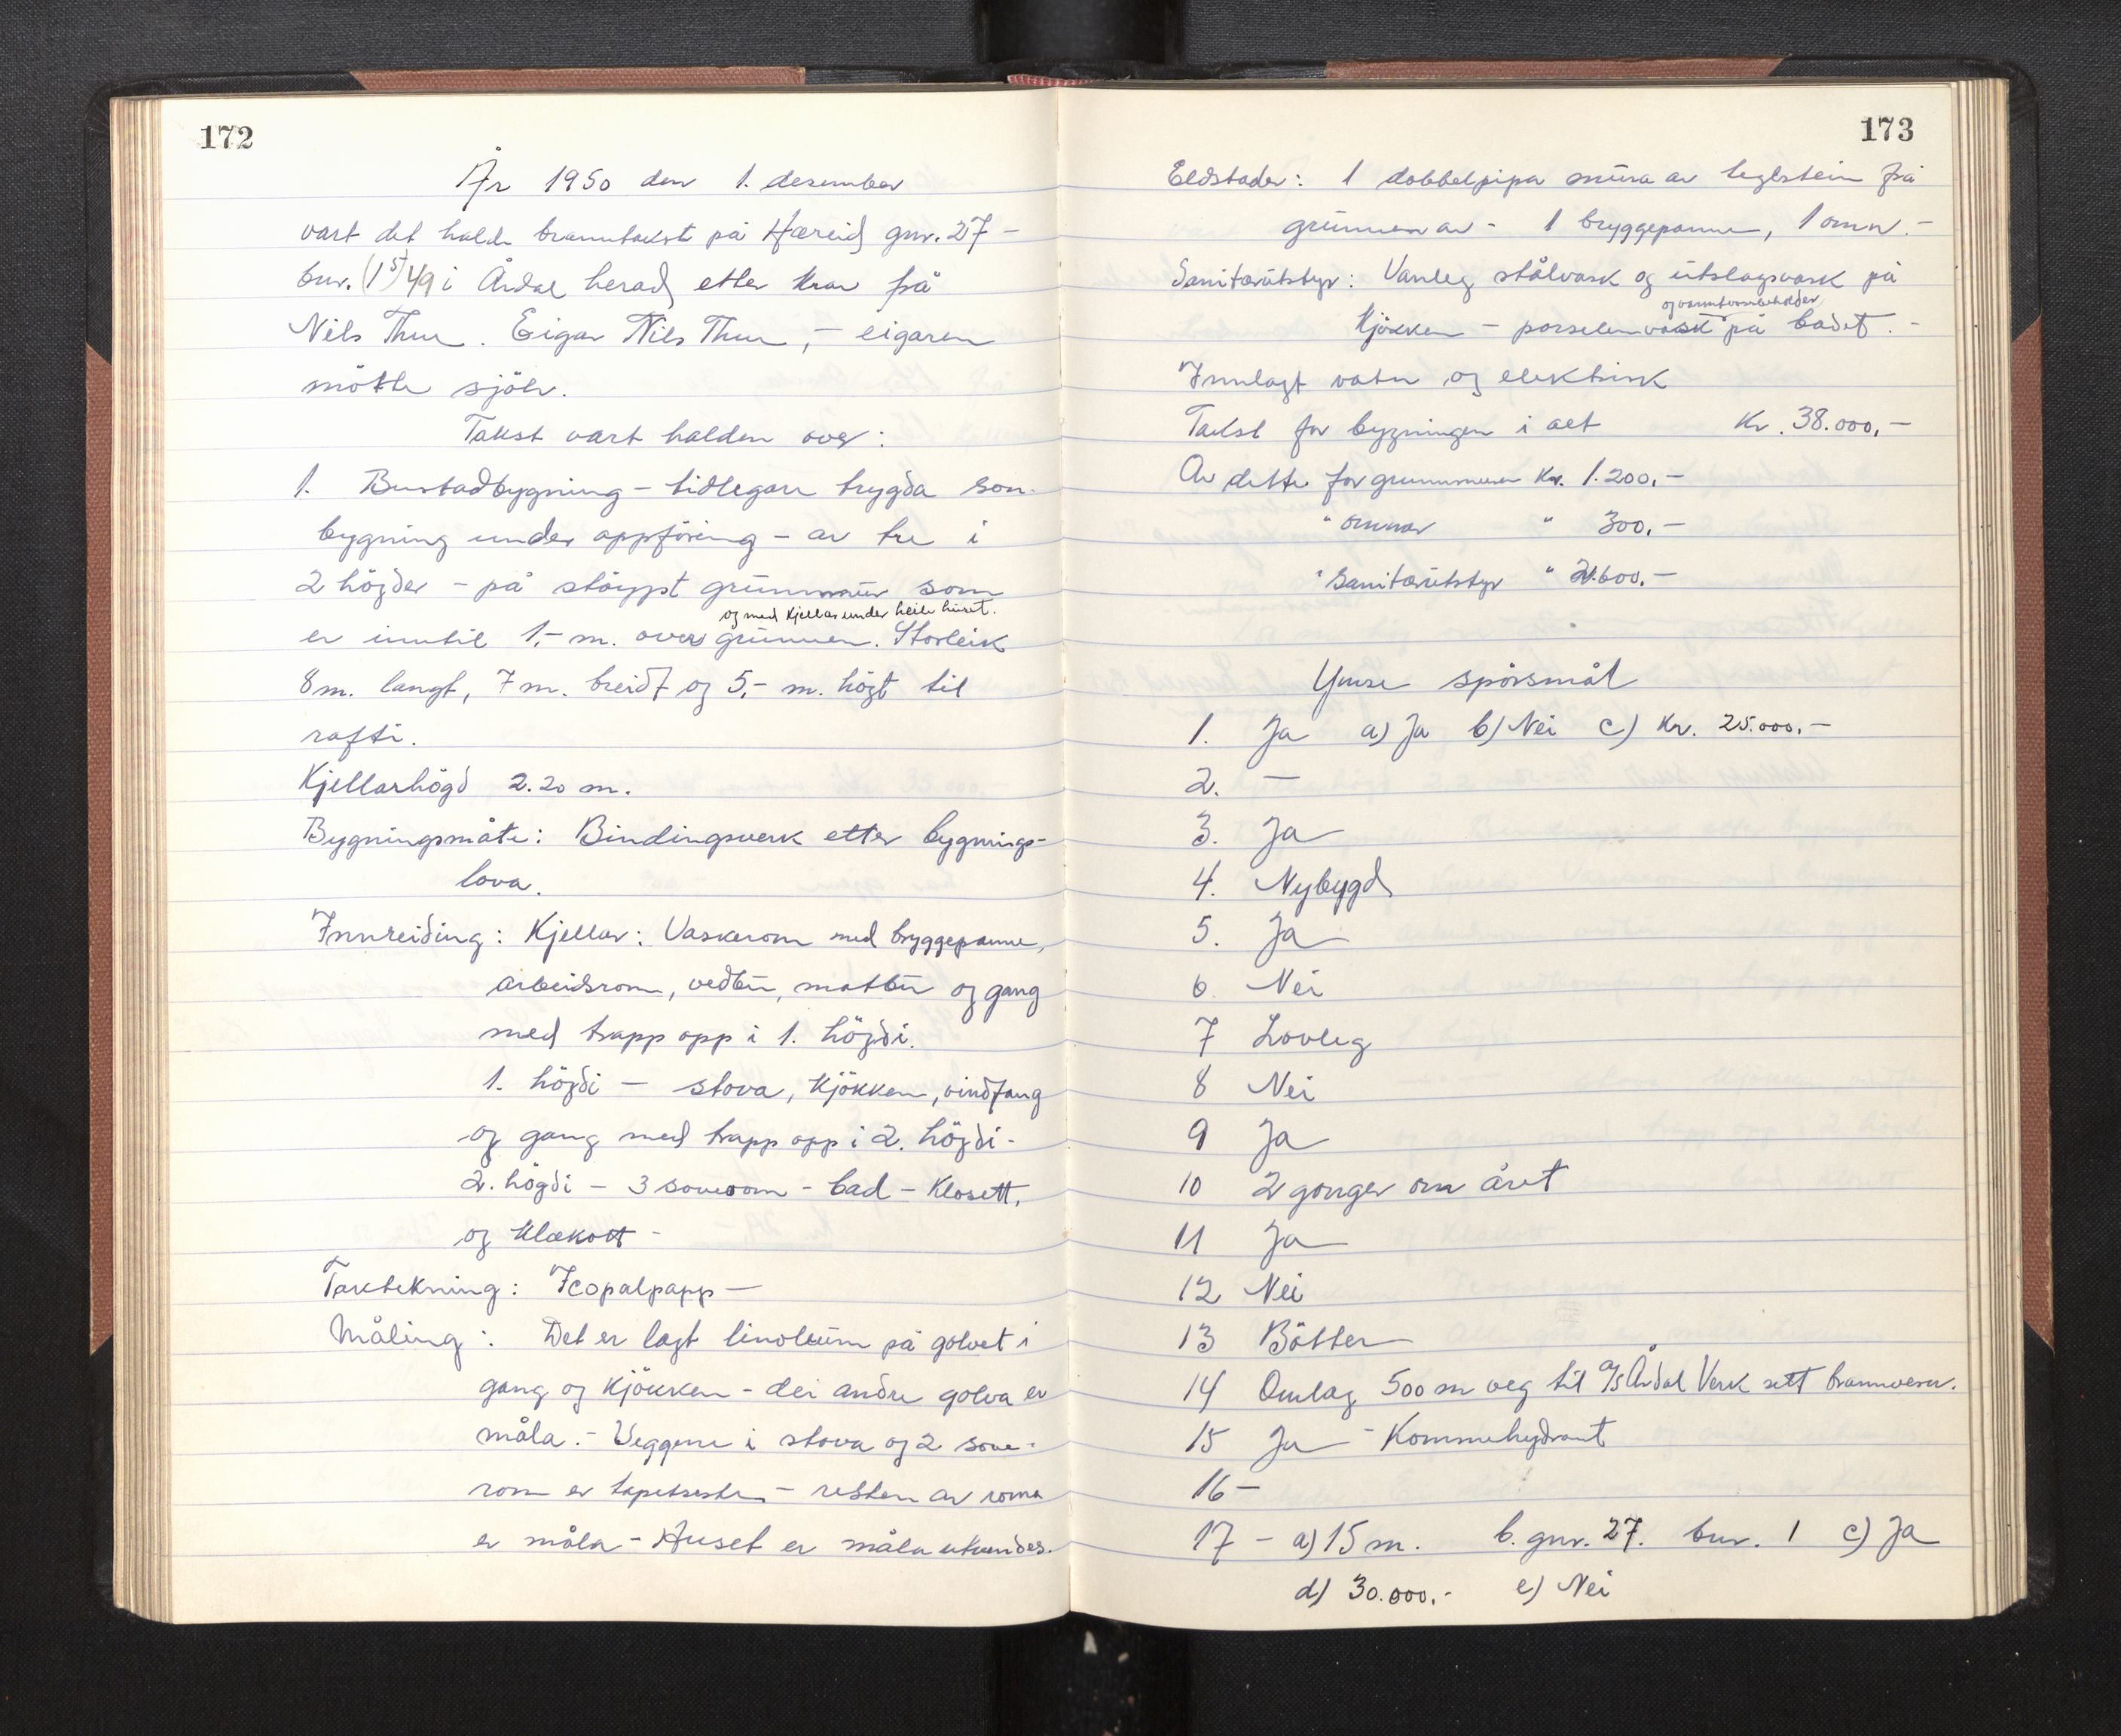 172
År 1950 den 1. desember
vart det halde branntakst på Hæreid gnr. 27 -
bnr. (15) 49 i Årdal herad etter krav frå
Nils Thue. Eigar Nils Thue, - eigaren
møtte sjölv.
Takst vart halden over:
1. Bustadbygning - tidlegare trygda som
bygning under oppföring - av tre i
2 högder - på stöypt grunnmur som
og med kjellar under heile huset.
er inntil 1,- m. over grunnen. Storleik
8 m. langt, 7 m. breidt og 5,- m. högt til
rafti.
Kjellarhögd 2.20 m.
Bygningsmåte: Bindingsverk etter bygnings-
lova.
Innreiding: Kjellar: Vaskerom med bryggepanne,
arbeidsrom, vedbu, matbu og gang
med trapp opp i 1. högdi.
1. högdi - stova, kjökken, vindfang
og gang med trapp opp i 2. högdi -
2. högdi - 3 soverom - bad - klosett,
og klækott -
Taktekning: Icopalpapp -
Måling: Det er lagt linoleum på golvet i
gang og kjökken - dei andre golva er
måla. - Veggene i stova og 2 sove-
rom er tapetserte - resten av roma
er måla - Huset er måla utvendes.
173
Eldstader: 1 dobbelpipa mura av teglstein frå
grunnen av - 1 bryggepanne, 1 omn. -
Sanitærutstyr: Vanleg stålvask og utslagsvask på
og varmtvassbehalder
kjökken - porselenvask på badet. -
Innlagt vatn og elektrisk
Takst for bygningen i alt Kr. 38.000,-
Av dette for grunnmuren Kr. 1.200,-
" omnar " 300,-
" Sanitærutstyr " 2.600,-
Ymse spörsmål
1. Ja a) Ja b) Nei c) Kr. 25.000,-
2. -
3. Ja
4. Nybygd
5. Ja
6 Nei
7 Lovleg
8 Nei
9 Ja
10 2 gonger om året
11 Ja
12 Nei
13 Bötter
14 Omlag 500 m veg til A/S Årdal Verk sitt brannvern.
15 Ja - Kommehydrant
16 -
17 - a) 15 m. b. gnr. 27. bnr. 1 c) Ja
d) 30.000,- e) Nei